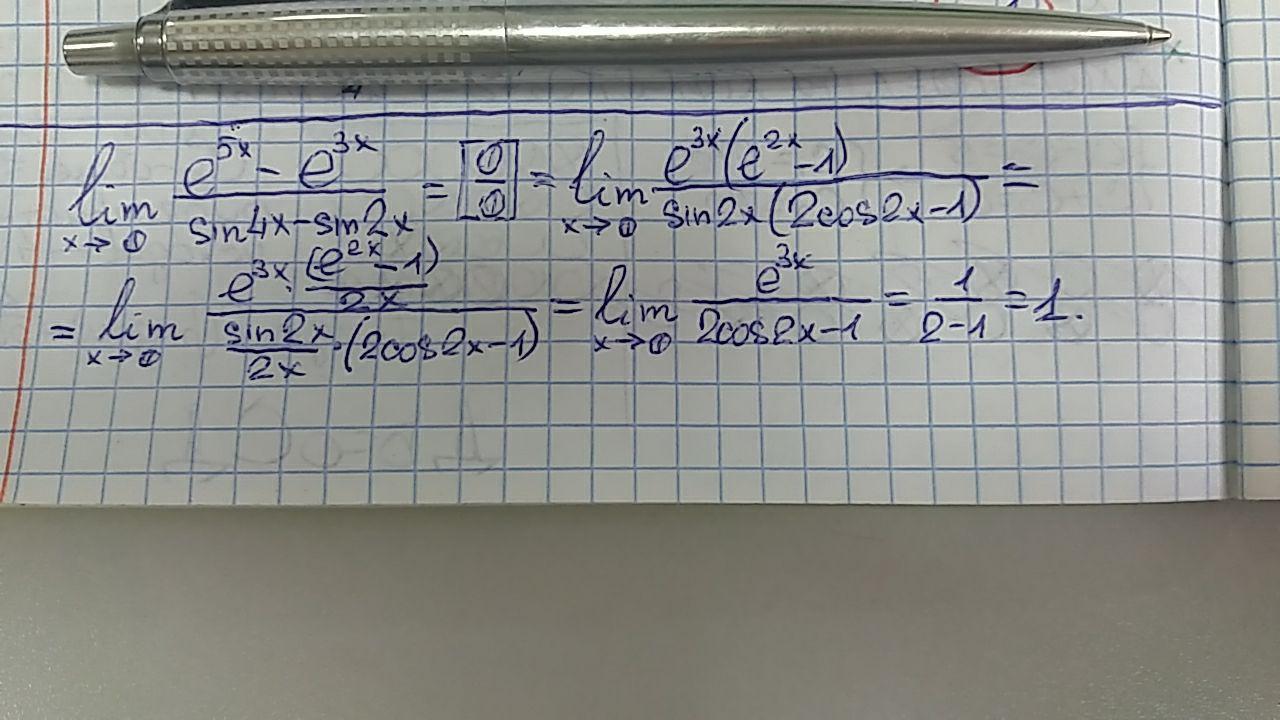 lim x→0 (e^{5x} - e^{3x})/(sin4x-sin2x) = [0/0] = lim x→0 (e^{3x}(e^{2x}-1))/(sin2x(2cos2x-1)) =
= lim x→0 (e^{3x}·(e^{2x}-1)/(2x))/((sin2x)/(2x)·(2cos2x-1)) = lim x→0 (e^{3x})/(2cos2x-1) = 1/(2-1) = 1.